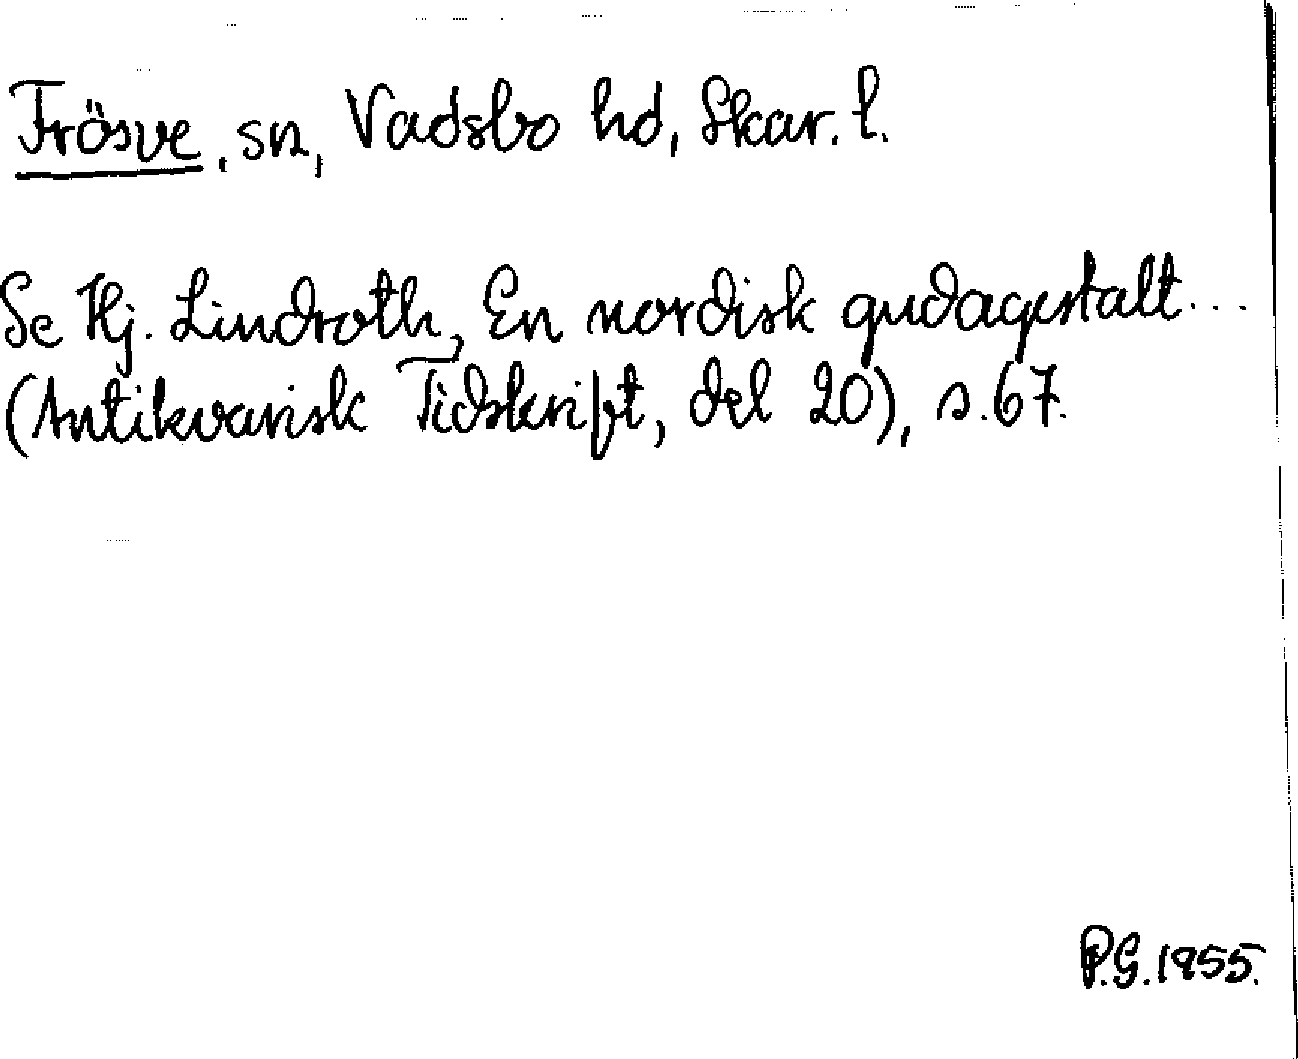 Frösve, sn, Vadsbo hd, Skar. l.
Se Hj. Lindroth, En nordisk gudagestalt...
(Antikvarisk Tidskrift, del 20), s.67.
P.G.1955.